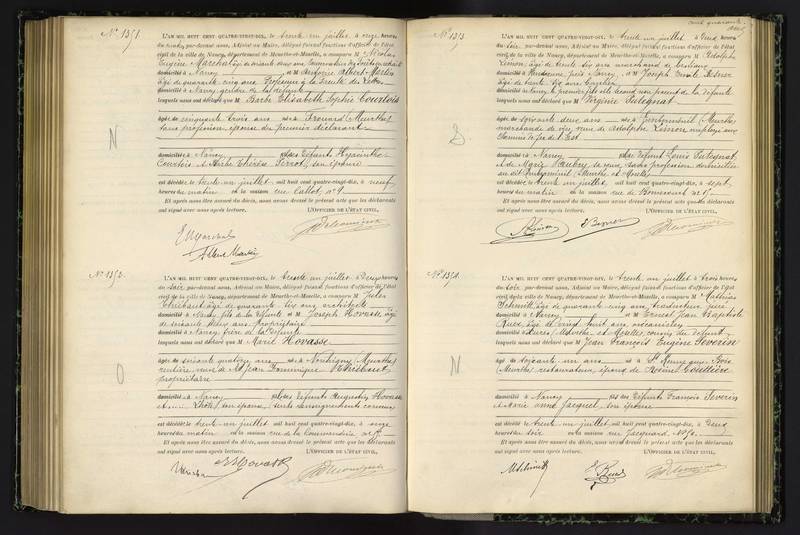 Nº 1351.
L'AN MIL HUIT CENT QUATRE-VINGT-DIX, le trente un juillet, à onze heures
du matin, par-devant nous, Adjoint au Maire, délégué faisant fonctions d'officier de l'état
civil de la ville de Nancy, département de Meurthe-et-Moselle, a comparu M Nicolas
Eugène Marchal âgé de soixante deux ans
domicilié à Nancy et M Albert Martin
âgé de quarante cinq ans, Professeur à la Faculté des Lettres
domicilié à Nancy, gendre de la défunte
lesquels nous ont déclaré que M Barbe Elisabeth Sophie Courtois
âgée de cinquante trois ans née à Frouard (Meurthe)
sans profession, épouse du premier déclarant
domiciliée à Nancy fille des défunts Hyacinthe
Courtois et Barbe Thérèse Perrot, son épouse
est décédée, le trente un juillet, mil huit cent quatre-vingt-dix, à neuf
heures du matin en la maison rue Callot, nº 9
Et après nous être assuré du décès, nous avons dressé le présent acte que les déclarants
ont signé avec nous après lecture. L'OFFICIER DE L'ÉTAT CIVIL,
E Marchal
Albert Martin
N
Nº 1352.
L'AN MIL HUIT CENT QUATRE-VINGT-DIX, le trente un juillet, à Deux heures
du soir, par-devant nous, Adjoint au Maire, délégué faisant fonctions d'officier de l'état
civil de la ville de Nancy, département de Meurthe-et-Moselle, a comparu M Jules
Thiébaut âgé de quarante six ans, architecte
domicilié à Nancy, fils de la défunte et M Joseph Hovasse, âgé
de soixante Deux ans, Propriétaire
domicilié à Nancy, frère de la défunte
lesquels nous ont déclaré que M Marie Hovasse
âgée de soixante quatorze ans née à (Meurthe)
rentière, veuve de Jean Dominique Thiébaut
propriétaire
domiciliée à Nancy fille des défunts Augustin Hovasse
et ..... Lhôte, son épouse, seuls renseignements connus
est décédée, le trente un juillet, mil huit cent quatre-vingt-dix, à onze
heures du matin en la maison rue de la Commanderie
Et après nous être assuré du décès, nous avons dressé le présent acte que les déclarants
ont signé avec nous après lecture. L'OFFICIER DE L'ÉTAT CIVIL,
Hovasse
O
cent quarante
Nº 1353
L'AN MIL HUIT CENT QUATRE-VINGT-DIX, le trente un juillet, à Deux heures
du soir, par-devant nous, Adjoint au Maire, délégué faisant fonctions d'officier de l'état
civil de la ville de Nancy, département de Meurthe-et-Moselle, a comparu M Adolphe
Limon, âgé de trente six ans, marchand de bestiaux
domicilié à près Nancy et M Joseph
âgé de trente six ans, Employé
domicilié à Nancy, le premier fils et le second non parent de la défunte
lesquels nous ont déclaré que M Virginie Putegnat
âgée de soixante deux ans née à (Meurthe)
marchande de vin, veuve de Adolphe Limon employé aux
chemins de fer de l'Est
domiciliée à Nancy fille de défunt Louis Putegnat,
et de Marie sa veuve, sans profession, domiciliée
(Meurthe et Moselle)
est décédée, le trente un juillet, mil huit cent quatre-vingt-dix, à sept
heures du matin en la maison rue de Bonsecours
Et après nous être assuré du décès, nous avons dressé le présent acte que les déclarants
ont signé avec nous après lecture. L'OFFICIER DE L'ÉTAT CIVIL,
ALimon
Nº 1354.
L'AN MIL HUIT CENT QUATRE-VINGT-DIX, le trente un juillet, à trois heures
du soir, par-devant nous, Adjoint au Maire, délégué faisant fonctions d'officier de l'état
civil de la ville de Nancy, département de Meurthe-et-Moselle, a comparu M Mathias
Schmitt, âgé de quarante cinq ans, traducteur juré
domicilié à Nancy et M Ernest Jean Baptiste
Ruez, âgé de vingt huit ans, mécanicien
domicilié à (Meurthe et Moselle), cousin du défunt
lesquels nous ont déclaré que M Jean François Eugène Severin
âgé de soixante un ans né à St Remy aux Bois
(Meurthe) restaurateur, époux de Rosine
domicilié à Nancy fils des défunts François Severin
et Marie Anne Jacquel, son épouse
est décédé, le trente un juillet, mil huit cent quatre-vingt-dix, à Deux
heures du soir en la maison rue Jacquard, Nº
Et après nous être assuré du décès, nous avons dressé le présent acte que les déclarants
ont signé avec nous après lecture. L'OFFICIER DE L'ÉTAT CIVIL,
MSchmitt
E Ruez
N